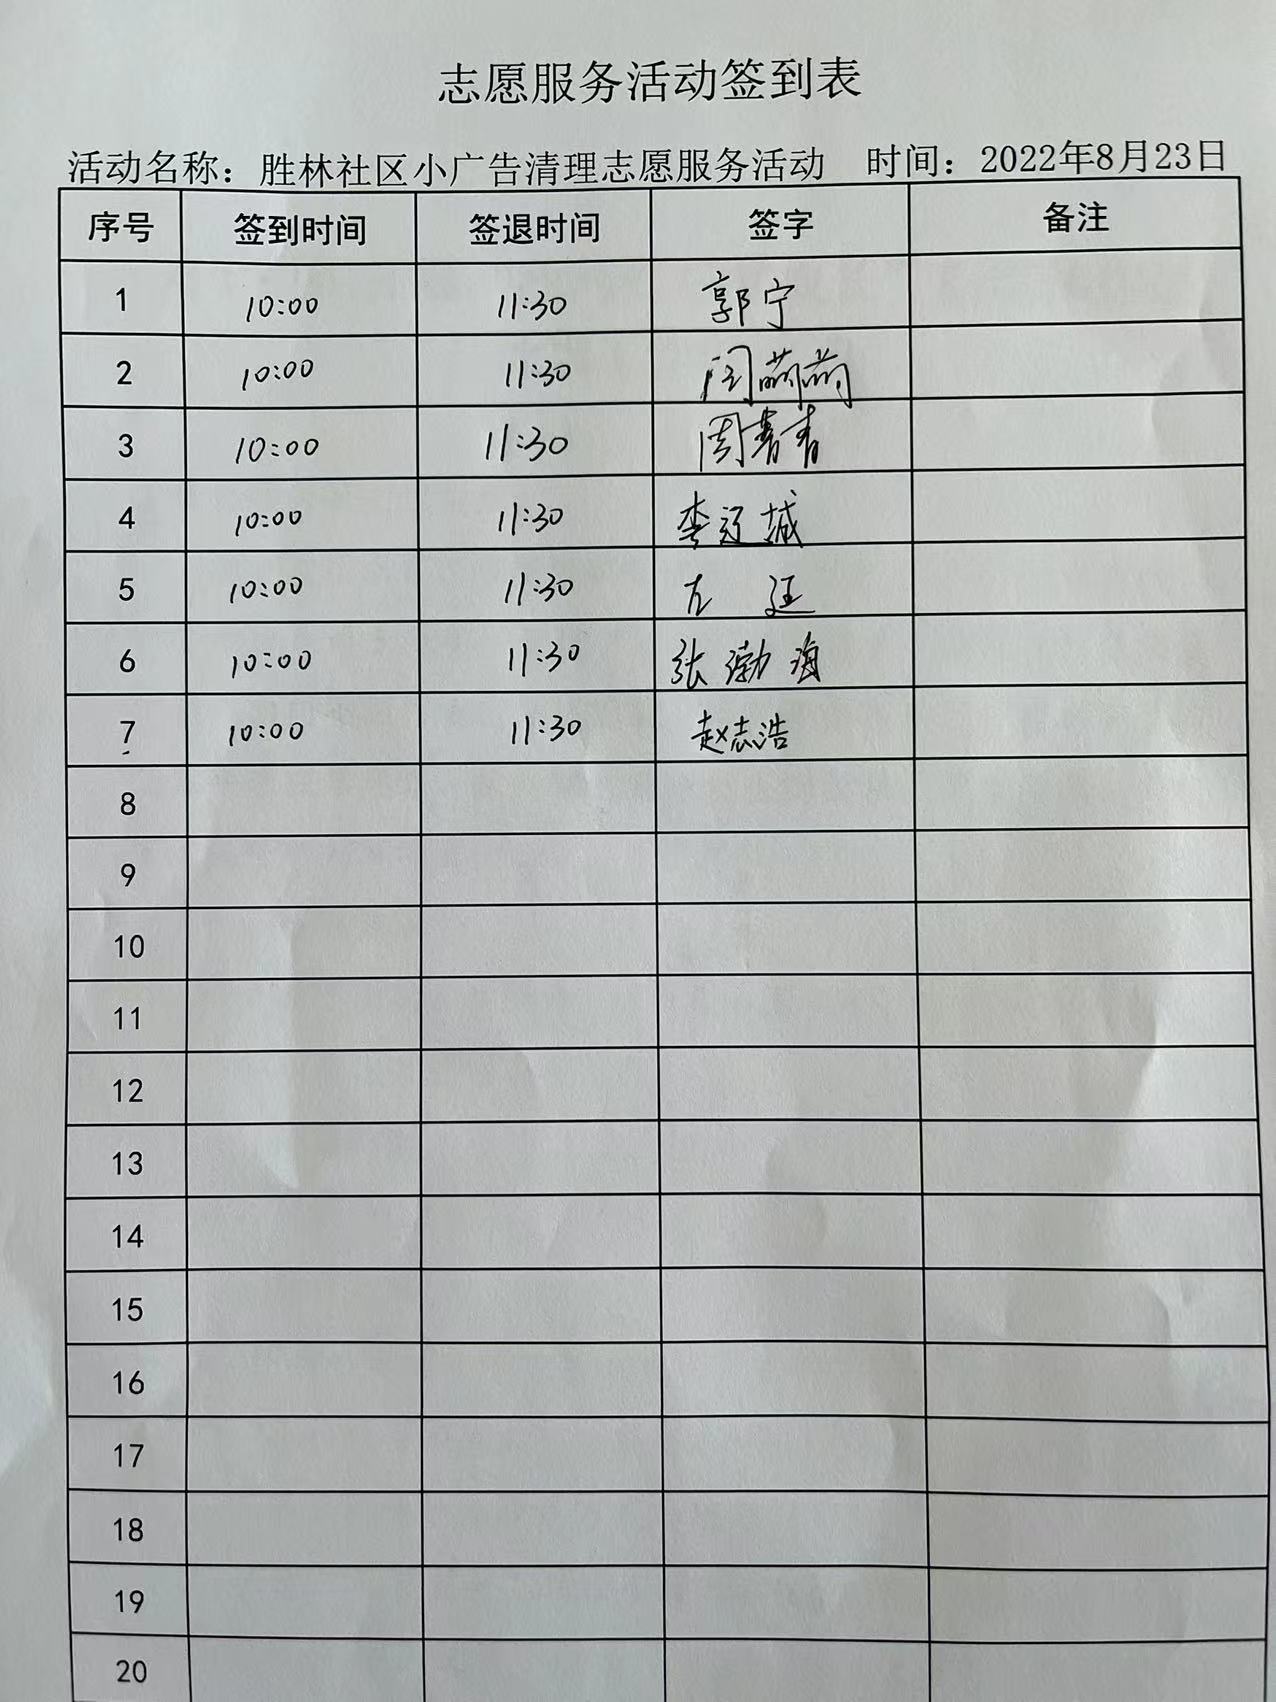 志愿服务活动签到表
活动名称：胜林社区小广告清理志愿服务活动 时间：2022年8月23日
序号 签到时间 签退时间 签字 备注
1 10:00 11:30 郭宁
2 10:00 11:30
3 10:00 11:30 周青青
4 10:00 11:30 李辽城
5 10:00 11:30 左
6 10:00 11:30 张渤海
7 10:00 11:30 赵志浩
8
9
10
11
12
13
14
15
16
17
18
19
20